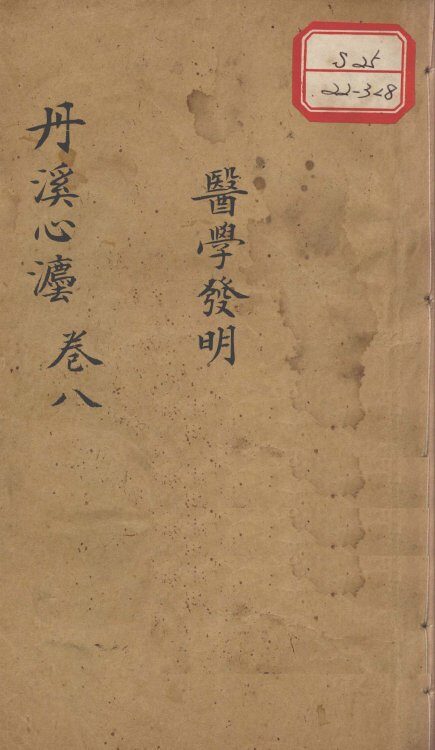 S 25
22-328
醫學發明
丹溪心灋 卷八